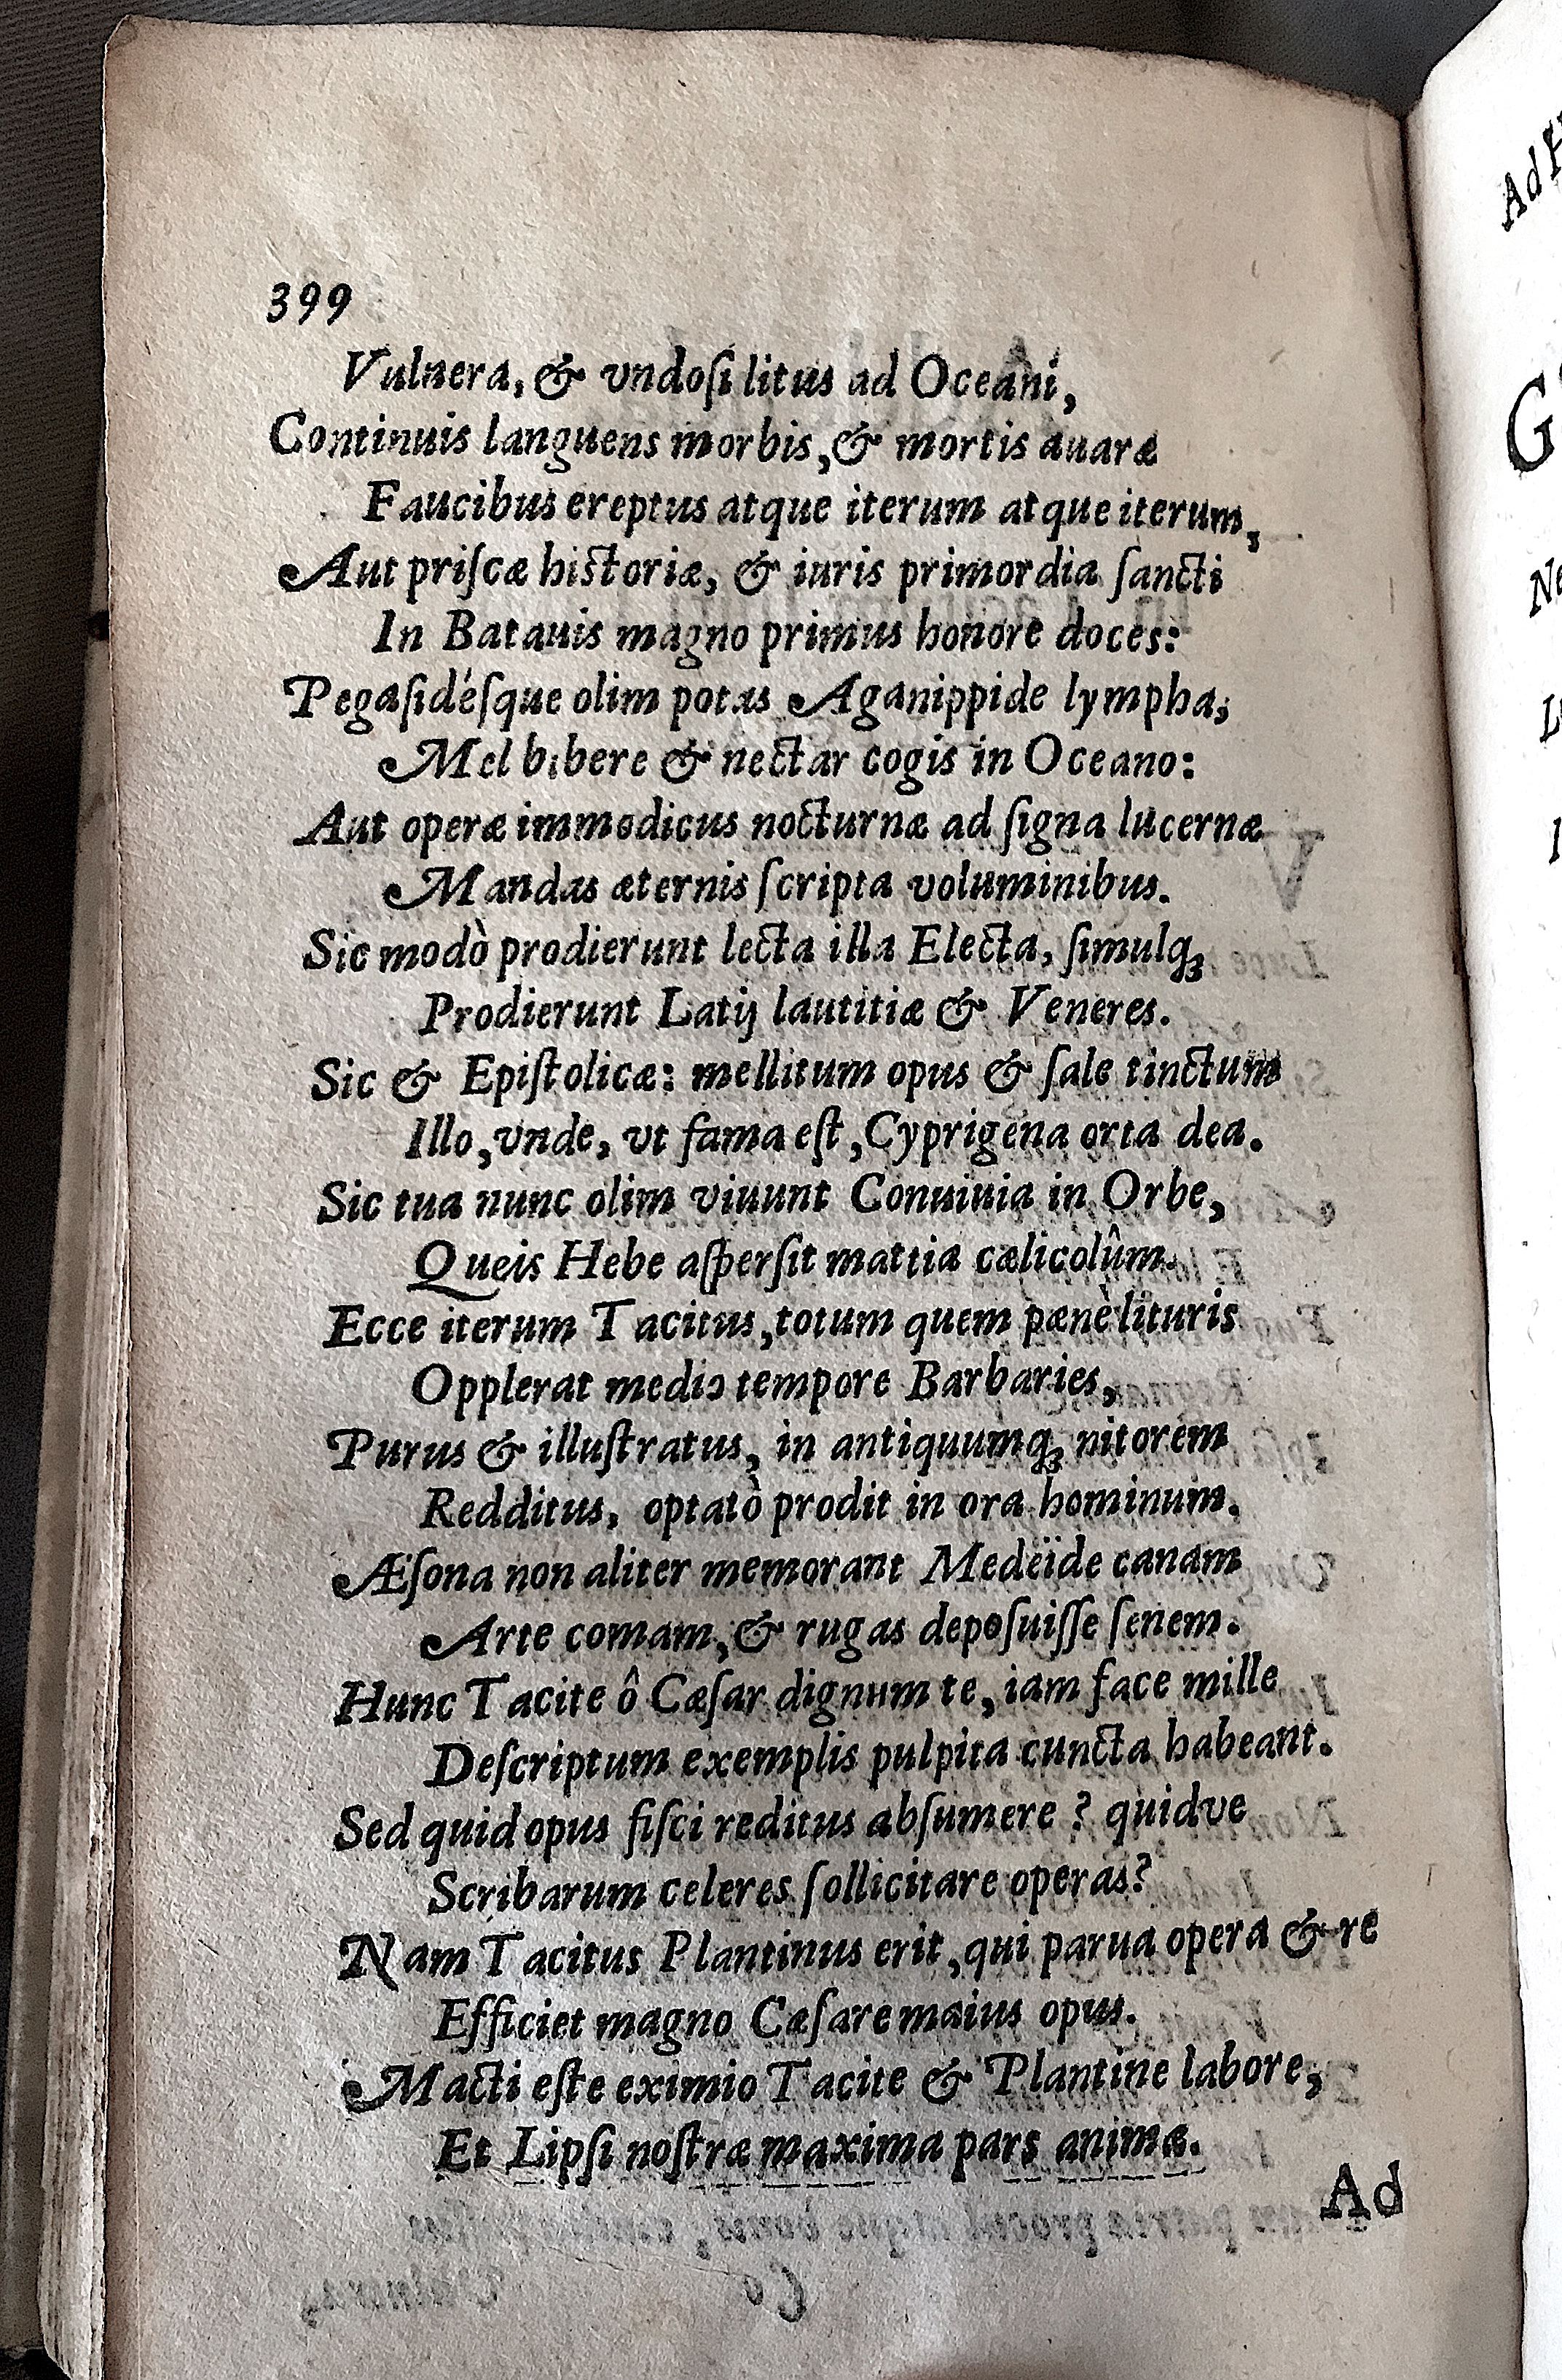 399
Vulnera, & vndoſi litus ad Oceani,
Continuis languens morbis, & mortis auaræ
Faucibus ereptus atque iterum atque iterum,
Aut priſcæ hiſtoriæ, & iuris primordia ſancti
In Batauis magno primus honore doces:
Pegaſidéſque olim potas Aganippide lympha,
Mel bibere & nectar cogis in Oceano:
Aut operæ immodicus nocturnæ ad ſigna lucernæ
Mandas æternis ſcripta voluminibus.
Sic modò prodierunt lecta illa Electa, ſimulq;
Prodierunt Latij lautitiæ & Veneres.
Sic & Epiſtolicæ: mellitum opus & ſale tinctum
Illo, vnde, vt fama eſt, Cyprigena orta dea.
Sic tua nunc olim viuunt Conuiuia in Orbe,
Queis Hebe aſperſit mattia cælicolûm.
Ecce iterum Tacitus, totum quem pænè lituris
Opplerat medio tempore Barbaries,
Purus & illuſtratus, in antiquumq; nitorem
Redditus, optatò prodit in ora hominum.
Æſona non aliter memorant Medeïde canam
Arte comam, & rugas depoſuiſſe ſenem.
Hunc Tacite ô Cæſar dignum te, iam face mille
Deſcriptum exemplis pulpita cuncta habeant.
Sed quid opus fiſci reditus abſumere? quidve
Scribarum celeres ſollicitare operas?
Nam Tacitus Plantinus erit, qui parua opera & re
Efficiet magno Cæſare maius opus.
Macti eſte eximio Tacite & Plantine labore,
Et Lipſi noſtræ maxima pars animæ.
Ad